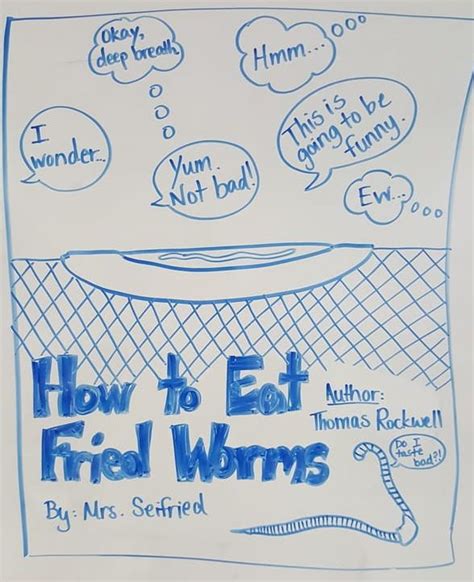 Okay,
deep breath
Hmm...
I
wonder...
Yum.
Not bad!
This is
going to be
funny.
Ew...
How to Eat
Fried Worms
Author:
Thomas Rockwell
Do I
taste
bad?!
By: Mrs. Seifried